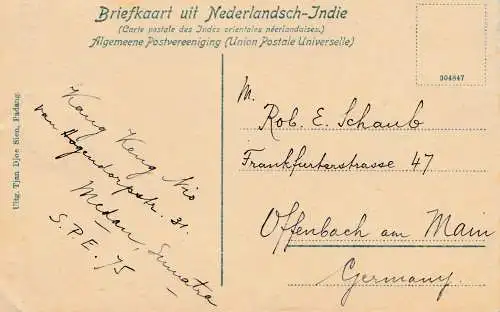 Briefkaart uit Nederlandsch-Indie
(Carte postale des Indes orientales néerlandaises.)
Algemeene Postvereeniging (Union Postale Universelle)
304847
Uitg. Tjan Djoe Sien, Padang.
Kang Keng Nio
van Hogendorpstr. 31.
Medan, Sumatra
S.P.E. 75
M.
Rob. E. Schaub
Frankfurterstrasse 47
Offenbach am Main
Germany.